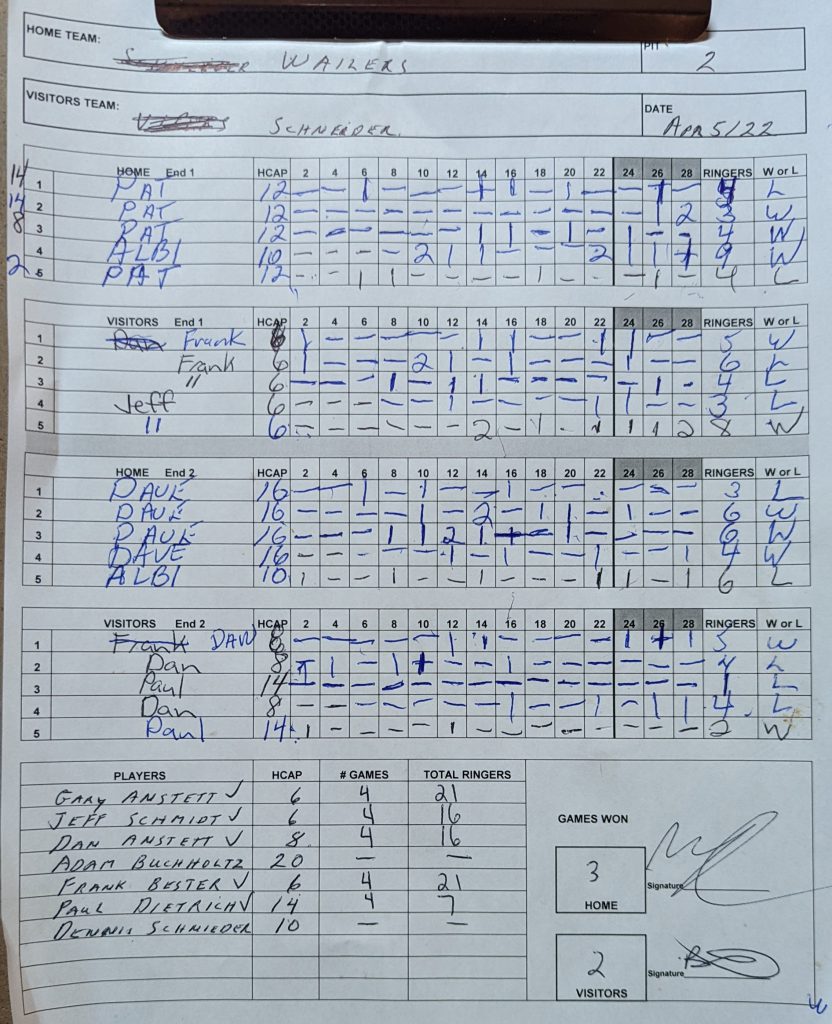 HOME TEAM: WAILERS PIT 2
VISITORS TEAM: SCHNEIDER. DATE APR 5/22
HOME End 1 HCAP 2 4 6 8 10 12 14 16 18 20 22 24 26 28 RINGERS W or L
14 1 PAT 12 — — 1 — — — 1 1 — 1 — — 1 — 4 L
14 2 PAT 12 — — — — — — — — — — — — 1 2 3 W
8 3 PAT 12 — — — — — — — 1 — 1 — 1 1 — 4 W
4 ALBI 10 — — — — 2 1 1 — — — 2 1 1 1 9 W
2 5 PAT 12 — — 1 1 — — — — 1 — — — 1 — 4 L
VISITORS End 1 HCAP 2 4 6 8 10 12 14 16 18 20 22 24 26 28 RINGERS W or L
1 Frank 6 1 — — — — — 1 1 — — 1 1 — — 5 W
2 Frank 6 1 — — — 2 1 — 1 — — — 1 — — 6 L
3 " 6 — — — 1 — 1 1 — — — — — 1 — 4 L
4 Jeff 6 — — — — — 1 — — — — 1 1 — — 3 L
5 " 6 — — — — — — 2 — 1 — 1 1 1 2 8 W
HOME End 2 HCAP 2 4 6 8 10 12 14 16 18 20 22 24 26 28 RINGERS W or L
1 DAVE 16 — — 1 — 1 — — 1 — — — — — — 3 L
2 DAVE 16 — — — — 1 — 2 — 1 1 — 1 — — 6 W
3 DAVE 16 — — — 1 1 2 1 — — 1 — — — — 6 W
4 DAVE 16 — — — — — 1 — 1 — — 1 — — 1 4 W
5 ALBI 10 1 — — 1 — — 1 — — — 1 1 — 1 6 L
VISITORS End 2 HCAP 2 4 6 8 10 12 14 16 18 20 22 24 26 28 RINGERS W or L
1 DAN 8 — — — — — 1 1 — — — — 1 1 1 5 W
2 Dan 8 1 1 — 1 — — — 1 — — — — — — 4 L
3 Paul 14 1 — — — — — — — — — — — — — 1 L
4 Dan 8 — — — — — — — 1 — — 1 — 1 1 4 L
5 Paul 14 1 — — — — 1 — — — — — — — — 2 W
PLAYERS HCAP # GAMES TOTAL RINGERS
GARY ANSTETT ✓ 6 4 21
JEFF SCHMIDT ✓ 6 4 16
DAN ANSTETT ✓ 8 4 16
ADAM BUCHHOLTZ 20 — —
FRANK BESTER ✓ 6 4 21
PAUL DIETRICH ✓ 14 4 7
DENNIS SCHMIEDER 10 — —
GAMES WON
3 Signature
HOME
2 Signature
VISITORS